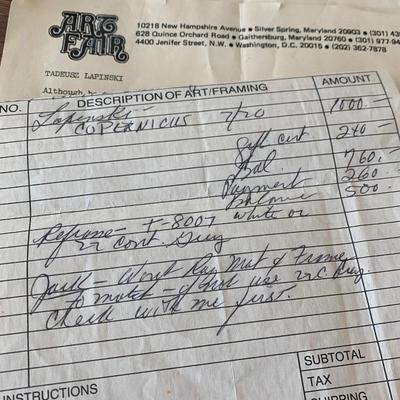 ART FAIR
10218 New Hampshire Avenue • Silver Spring, Maryland 20903 • (301) 43
628 Quince Orchard Road • Gaithersburg, Maryland 20760 • (301) 977-9
4400 Jenifer Street, N.W. • Washington, D.C. 20015 • (202) 362-7878
TADEUSZ LAPINSKI
Although
NO. DESCRIPTION OF ART/FRAMING AMOUNT
Lapinski - 1000.-
COPERNICUS 7/20
Gift cert. 240-
Bal. 760.-
Payment 260.-
Balance 500.-
Reframe - F-8007 white or
22 Cont. Grey
Jack - Want Rag Mat & Frame
to match - if not use 22 C Grey.
Check with me first.
SUBTOTAL
TAX
SHIPPING
INSTRUCTIONS